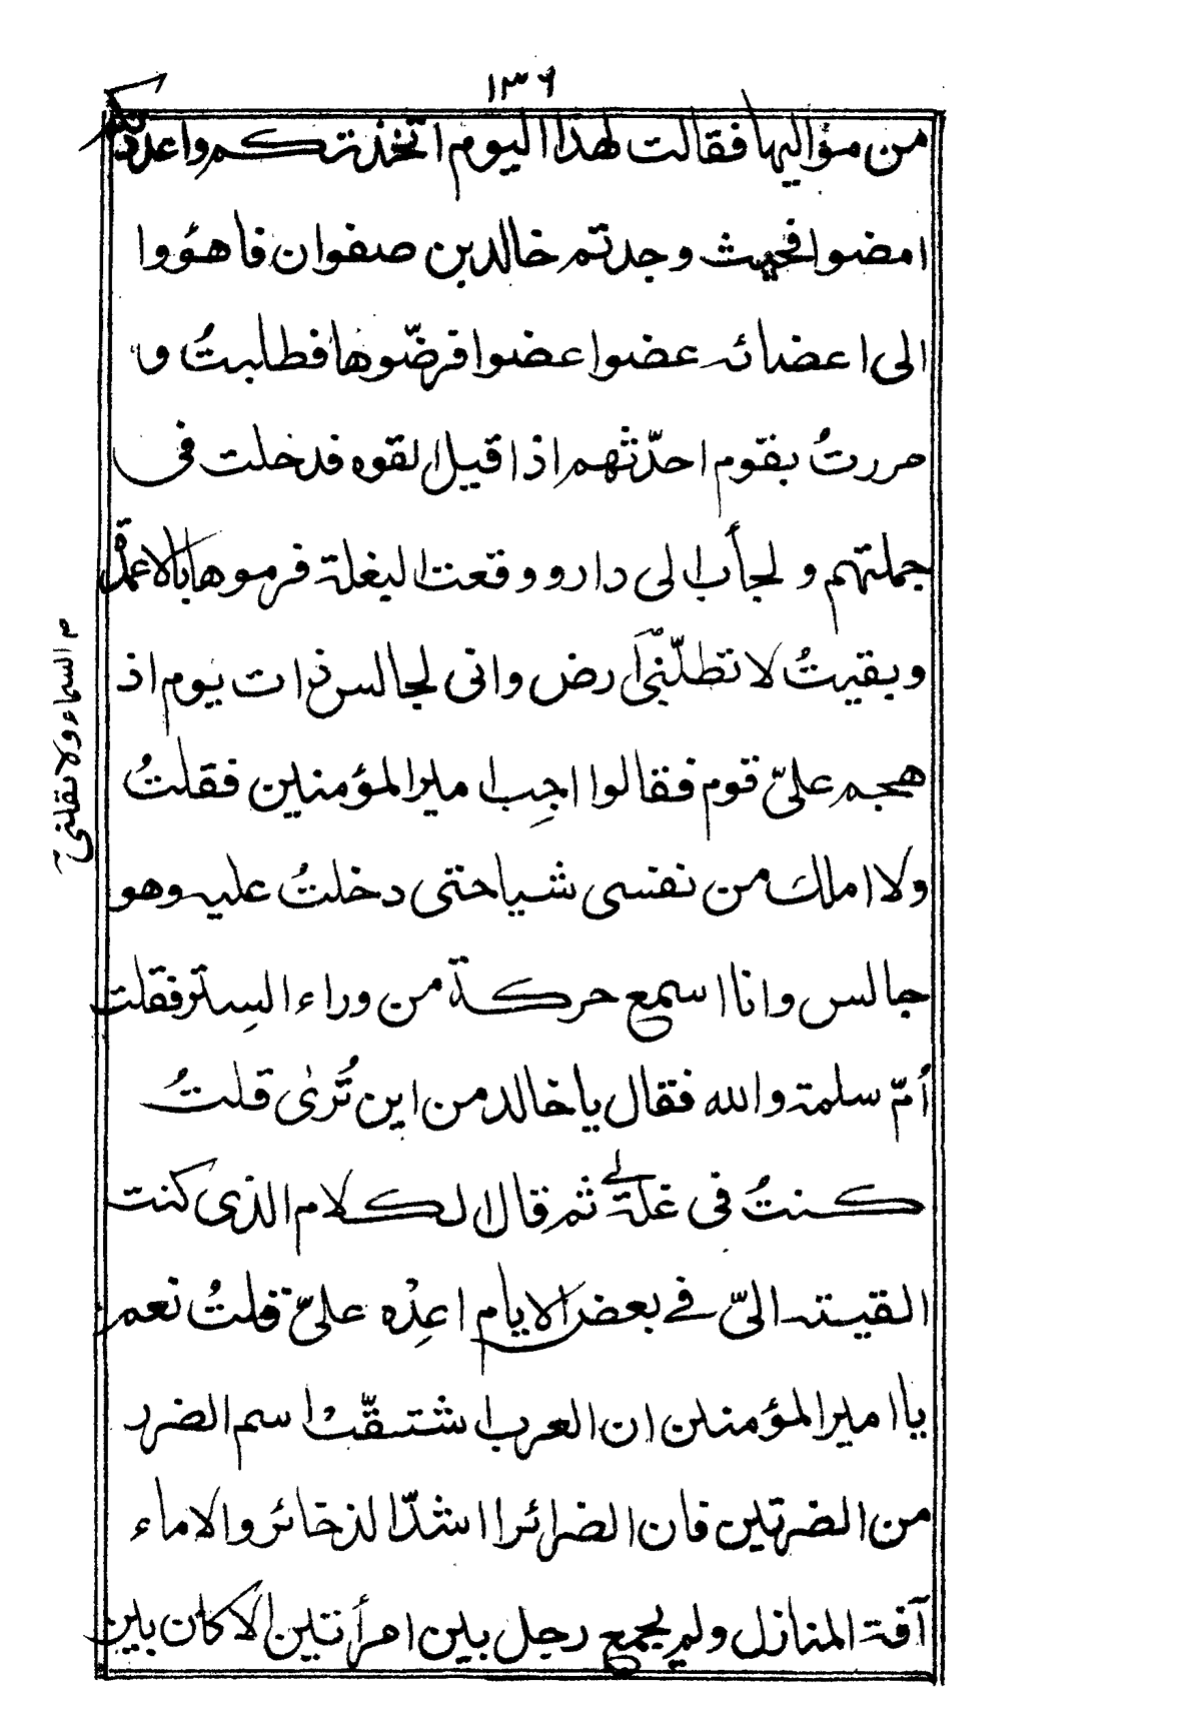 ١٣٦
من مؤاليها فقالت لهذا اليوم اتخذتكم واعددتكم
امضوا فحيث وجدتم خالد بن صفوان فاهؤوا
الى اعضائه عضوا عضوا فرضّوها فطلبتُ و
مررتُ بقوم احدّثهم اذا قيل القوه فدخلت فى
جملتهم و لجأت الى دار ووقعت البغلة فرموها بالاعمدة
وبقيتُ لا تظلّنى ارض وانى لجالس ذات يوم اذ
هجم علىّ قوم فقالوا اجِب امير المؤمنين فقلتُ
ولا املك من نفسى شيا حتى دخلتُ عليه وهو
جالس وانا اسمع حركة من وراء السِتر فقلت
اُمّ سلمة والله فقال يا خالد من اين تُرىٰ قلتُ
كنتُ فى غلة لى ثم قال الكلام الذى كنت
القيته الىّ فى بعض الايام اعِدْه علىّ قلتُ نعم
يا امير المؤمنين ان العرب اشتقّتْ اسم الضرر
من الضرتين فان الضرائر اشدّ الذخائر والاماء
آفة المنازل ولم يجمع رجل بين امرأتين الا كان بين
م السماء ولا تقلنى